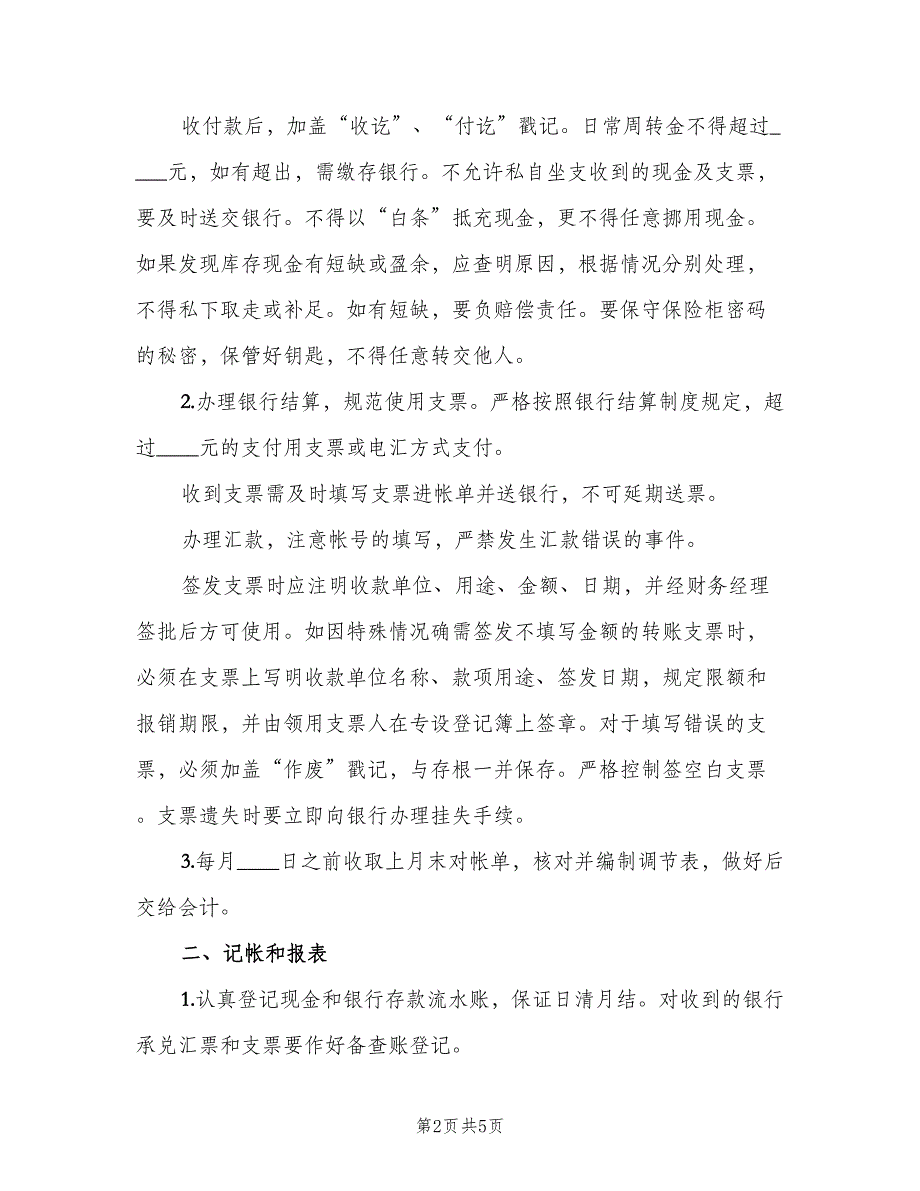 收付款后，加盖“收讫”、“付讫”戳记。日常周转金不得超过_
___元，如有超出，需缴存银行。不允许私自坐支收到的现金及支票，
要及时送交银行。不得以“白条”抵充现金，更不得任意挪用现金。
如果发现库存现金有短缺或盈余，应查明原因，根据情况分别处理，
不得私下取走或补足。如有短缺，要负赔偿责任。要保守保险柜密码
的秘密，保管好钥匙，不得任意转交他人。
2.办理银行结算，规范使用支票。严格按照银行结算制度规定，超
过____元的支付用支票或电汇方式支付。
收到支票需及时填写支票进帐单并送银行，不可延期送票。
办理汇款，注意帐号的填写，严禁发生汇款错误的事件。
签发支票时应注明收款单位、用途、金额、日期，并经财务经理
签批后方可使用。如因特殊情况确需签发不填写金额的转账支票时，
必须在支票上写明收款单位名称、款项用途、签发日期，规定限额和
报销期限，并由领用支票人在专设登记簿上签章。对于填写错误的支
票，必须加盖“作废”戳记，与存根一并保存。严格控制签空白支票
。支票遗失时要立即向银行办理挂失手续。
3.每月____日之前收取上月末对帐单，核对并编制调节表，做好后
交给会计。
二、记帐和报表
1.认真登记现金和银行存款流水账，保证日清月结。对收到的银行
承兑汇票和支票要作好备查账登记。
第2页共5页